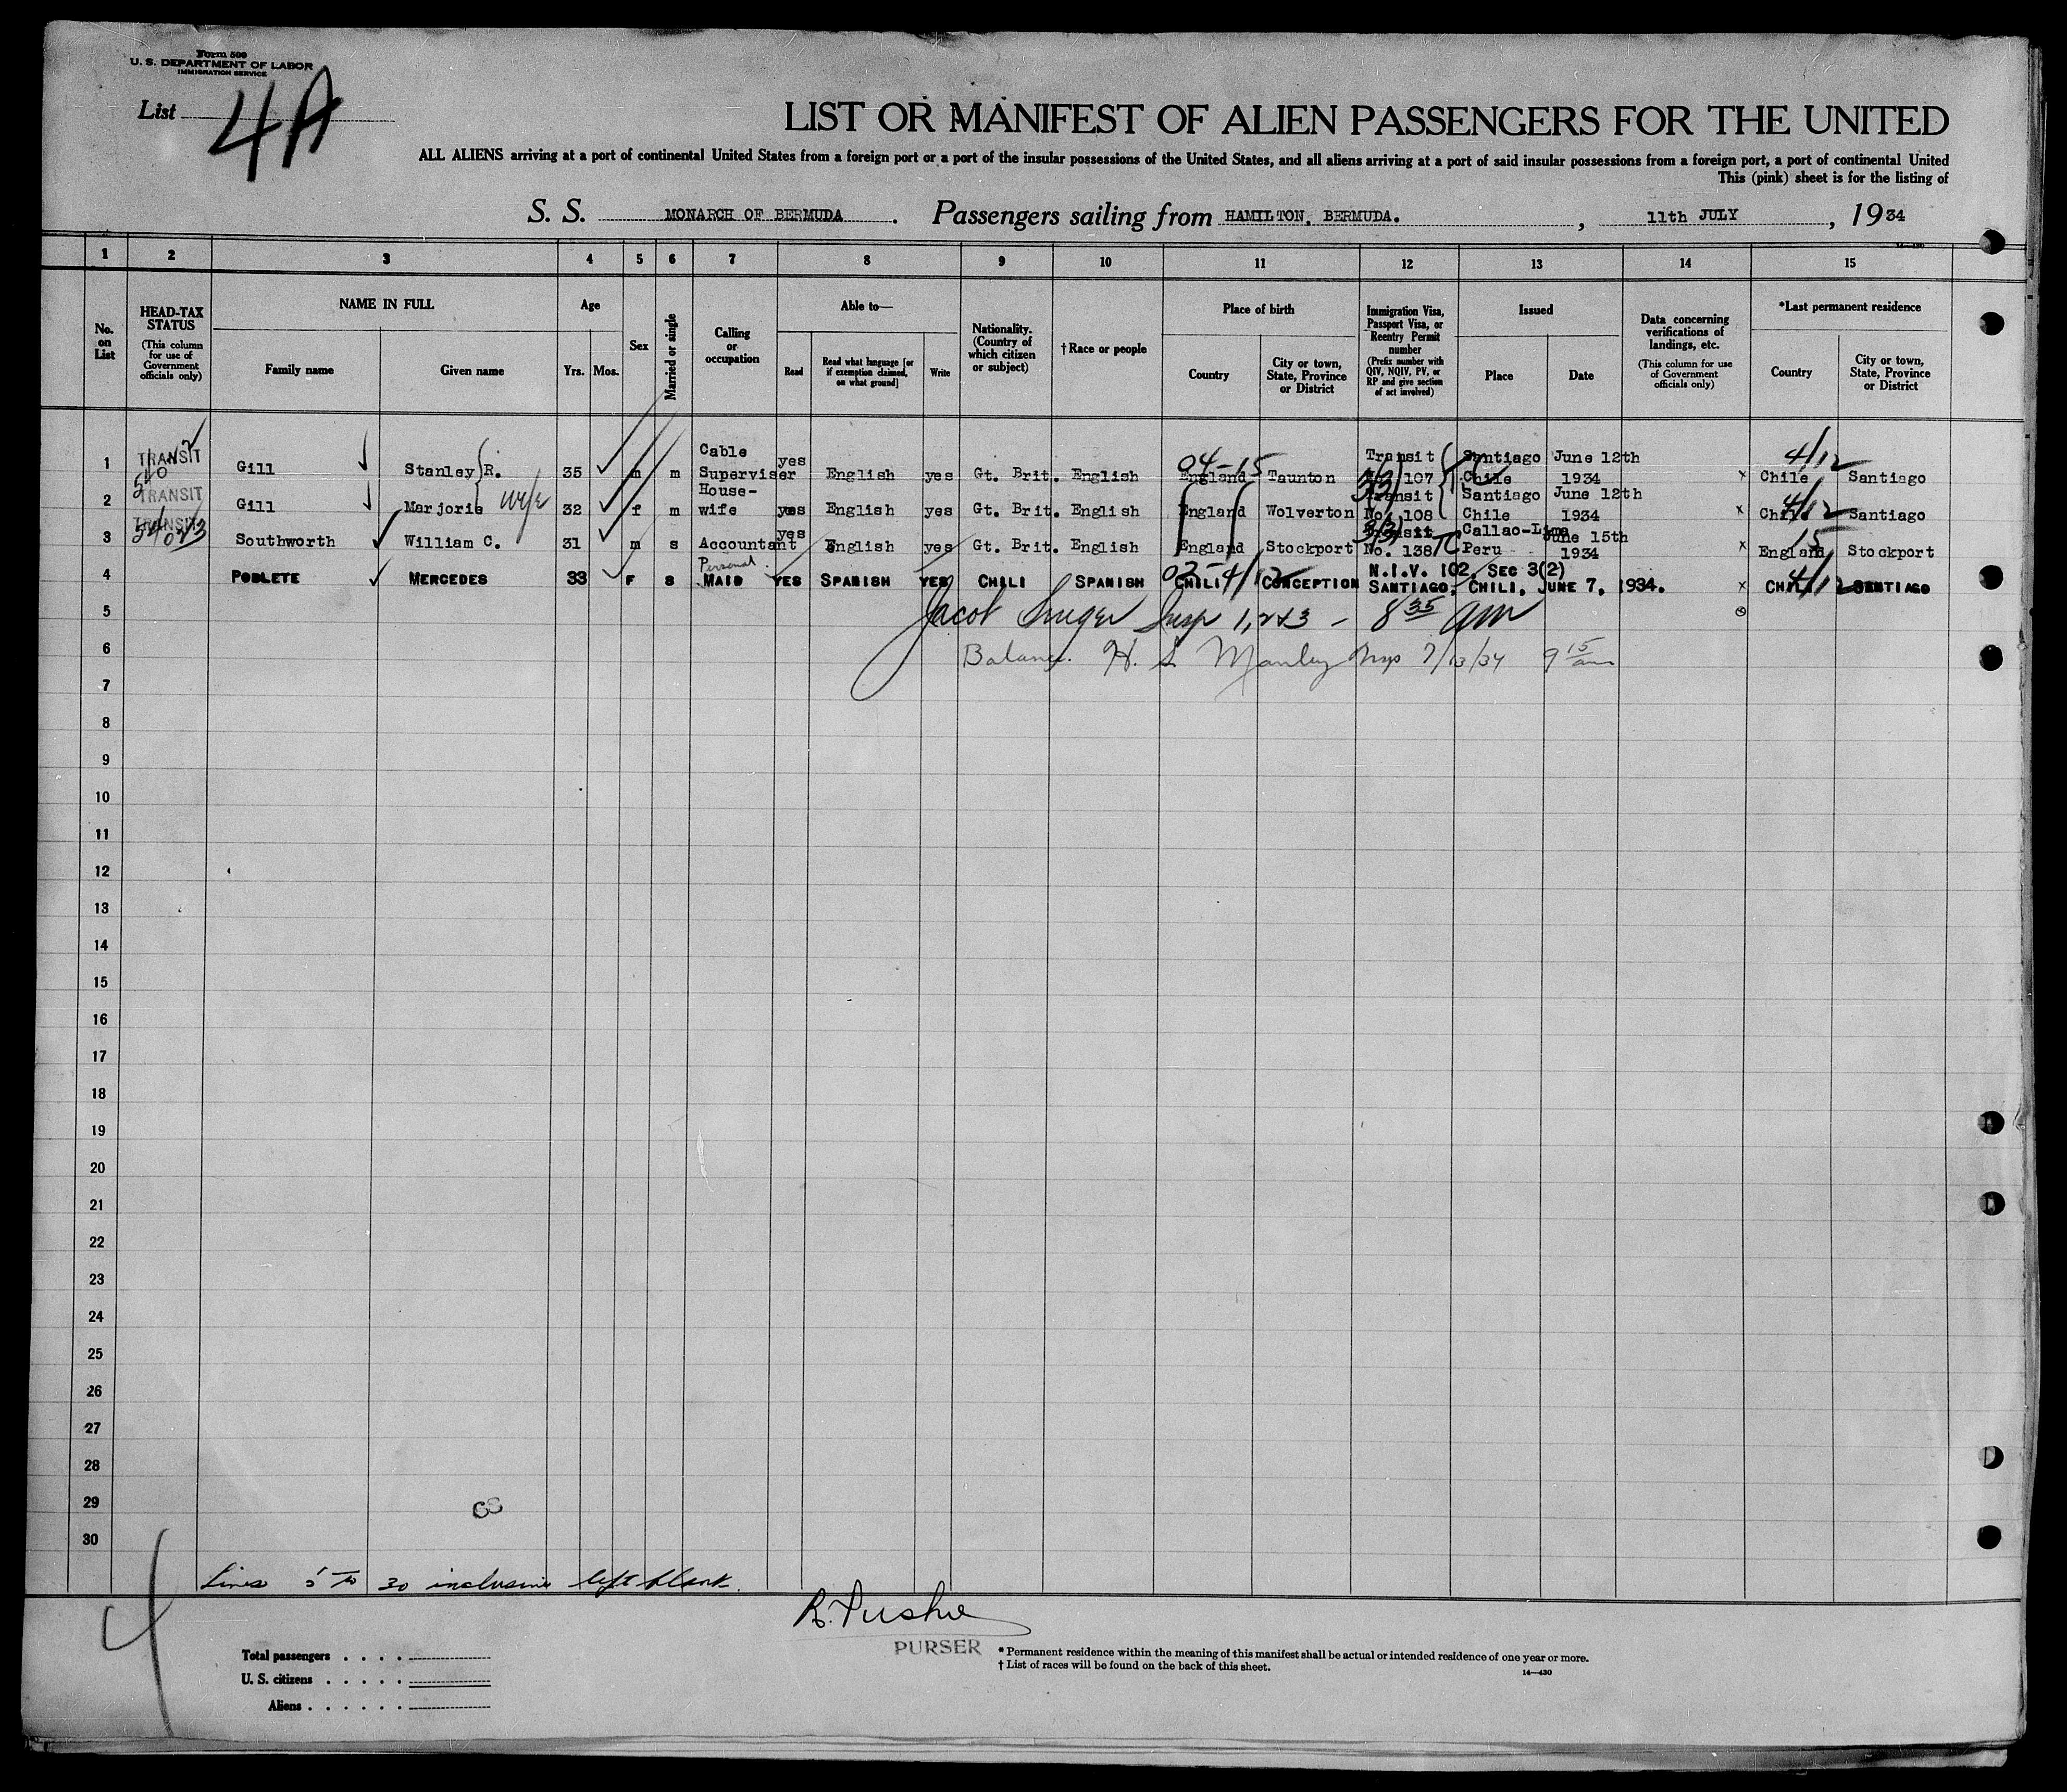 Form 500
U. S. DEPARTMENT OF LABOR
IMMIGRATION SERVICE
List 4A
LIST OR MANIFEST OF ALIEN PASSENGERS FOR THE UNITED
ALL ALIENS arriving at a port of continental United States from a foreign port or a port of the insular possessions of the United States, and all aliens arriving at a port of said insular possessions from a foreign port, a port of continental United
This (pink) sheet is for the listing of
S. S. MONARCH OF BERMUDA. Passengers sailing from HAMILTON, BERMUDA. , 11th JULY , 1934
14—430
1 2 3 4 5 6 7 8 9 10 11 12 13 14 15
No. on List
HEAD-TAX STATUS (This column for use of Government officials only)
NAME IN FULL
Family name
Given name
Age
Yrs. Mos.
Sex
Married or single
Calling or occupation
Able to—
Read
Read what language [or if exemption claimed, on what ground]
Write
Nationality. (Country of which citizen or subject)
†Race or people
Place of birth
Country
City or town, State, Province or District
Immigration Visa, Passport Visa, or Reentry Permit number (Prefix number with QIV, NQIV, PV, or RP and give section of act involved)
Issued
Place
Date
Data concerning verifications of landings, etc. (This column for use of Government officials only)
*Last permanent residence
Country
City or town, State, Province or District
1 TRANSIT Gill Stanley R. 35 m m Cable Superviser yes English yes Gt. Brit. English 04-15 England Taunton Transit 3(3) 107 Santiago Chile June 12th 1934 x 4/12 Chile Santiago
2 TRANSIT Gill Marjorie wife 32 f m House-wife yes English yes Gt. Brit. English England Wolverton Transit No. 108 Santiago Chile June 12th 1934 x 4/12 Chile Santiago
3 TRANSIT Southworth William C. 31 m s Accountant yes English yes Gt. Brit. English England Stockport 3(3) Transit No. 138 TC Callao-Lima Peru June 15th 1934 x 15 England Stockport
4 POBLETE MERCEDES 33 F S Personal MAID YES SPANISH YES CHILI SPANISH 02-4/12 CHILI CONCEPTION N.I.V. 102, SEC 3(2) SANTIAGO, CHILI, JUNE 7, 1934. x 4/12 CHILI SANTIAGO
5 Jacob Insp 1, 2 & 3 - 8 35 am
6 Balance. H. S. Manley Insp 7/13/34 9 15 am
7
8
9
10
11
12
13
14
15
16
17
18
19
20
21
22
23
24
25
26
27
28
29
30
Lines 5 to 30 inclusive left blank.
4
PURSER
Total passengers
U. S. citizens
Aliens
* Permanent residence within the meaning of this manifest shall be actual or intended residence of one year or more.
† List of races will be found on the back of this sheet.
14—430